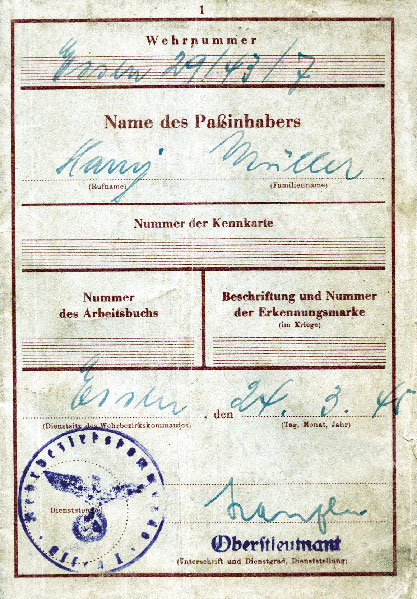 1
Wehrnummer
Essen 29/43/7
Name des Paßinhabers
Harry Müller
(Rufname) (Familienname)
Nummer der Kennkarte
Nummer des Arbeitsbuchs
Beschriftung und Nummer der Erkennungsmarke
(im Kriege)
Essen, den 24. 3. 45
(Dienstsitz des Wehrbezirkskommandos) (Tag, Monat, Jahr)
Dienststempel
Oberstleutnant
(Unterschrift und Dienstgrad, Dienststellung)